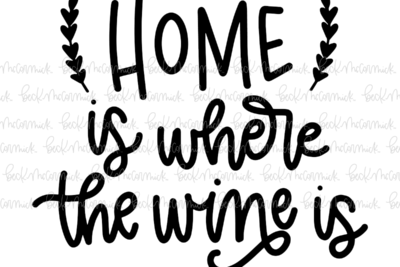 HOME
is where
the wine is